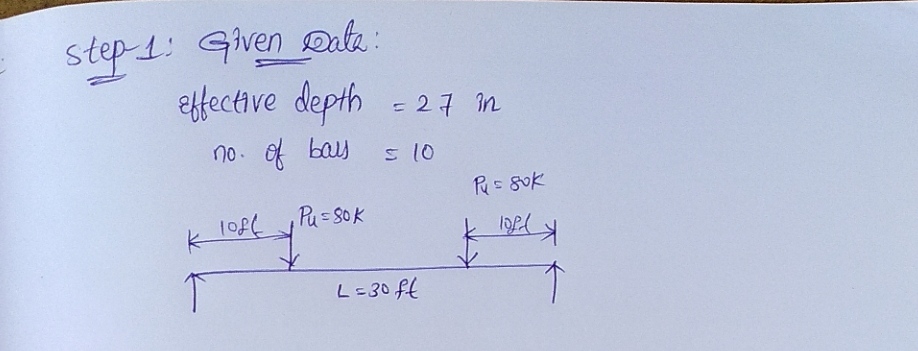 Step-1: Given Data:
effective depth = 27 in
no. of bars = 10
Pu = 80K
10ft Pu = 80K 10ft
L = 30 ft